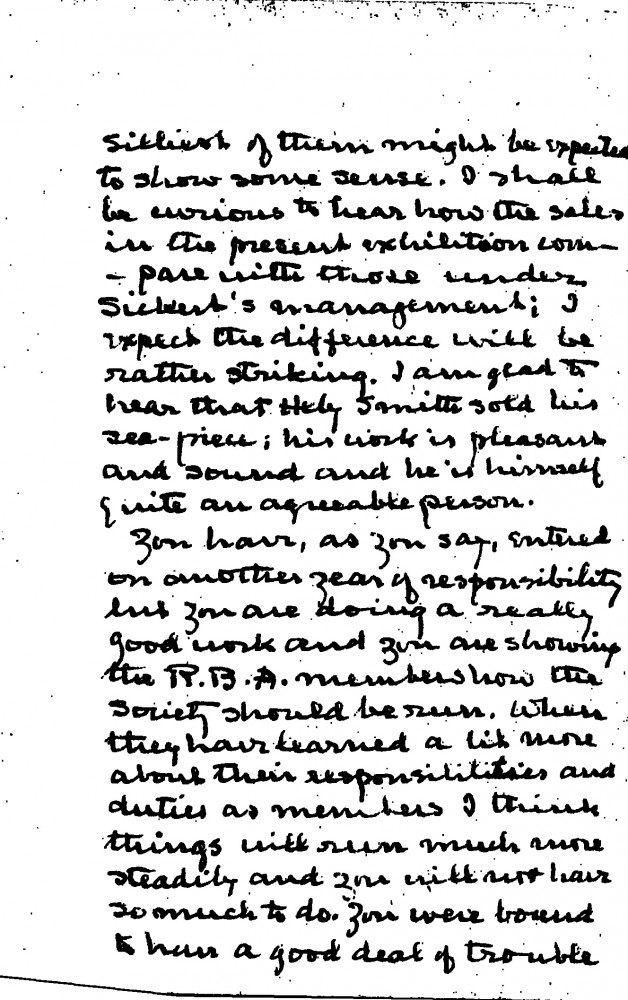 silliest of them might be expected
to show some sense. I shall
be curious to hear how the sales
in the present exhibition com-
- pare with those under
Sickert's management; I
expect the difference will be
rather striking. I am glad to
hear that Hely Smith sold his
sea-piece; his work is pleasant
and sound and he is himself
quite an agreeable person.
You have, as you say, entered
on another year of responsibility
but you are doing a really
good work and you are showing
the R.B.A. members how the
Society should be run. When
they have learned a bit more
about their responsibilities and
duties as members I think
things will run much more
steadily and you will not have
so much to do. You were bound
to have a good deal of trouble